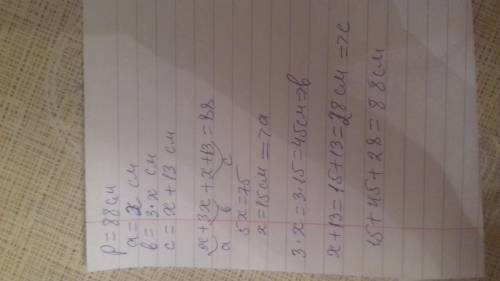 P = 88 см
a = x см
в = 3·x см
c = x + 13 см
x + 3x + x + 13 = 88
a в c
5x = 75
x = 15 см => a
3·x = 3·15 = 45 см => в
x + 13 = 15 + 13 = 28 см => c
15 + 45 + 28 = 88 см